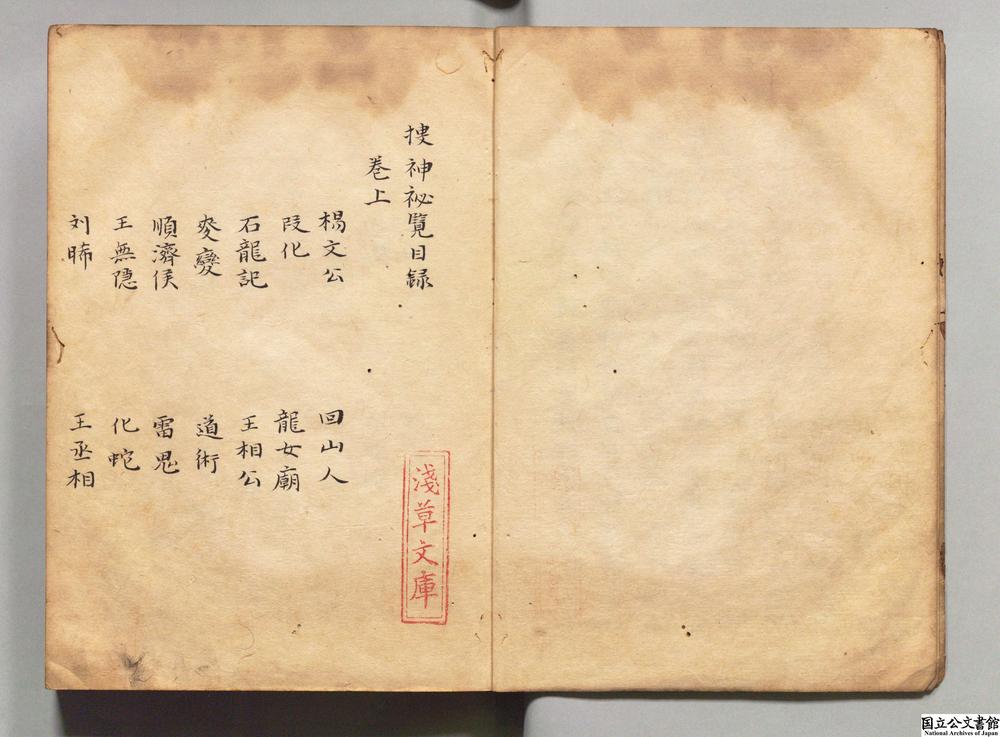 搜神祕覽目録
巻上
楊文公 回山人
段化 龍女廟
石龍記 王相公
麥變 道術
順濟侯 雷鬼
王無隱 化蛇
刘晞 王丞相
淺草文庫
国立公文書館
National Archives of Japan